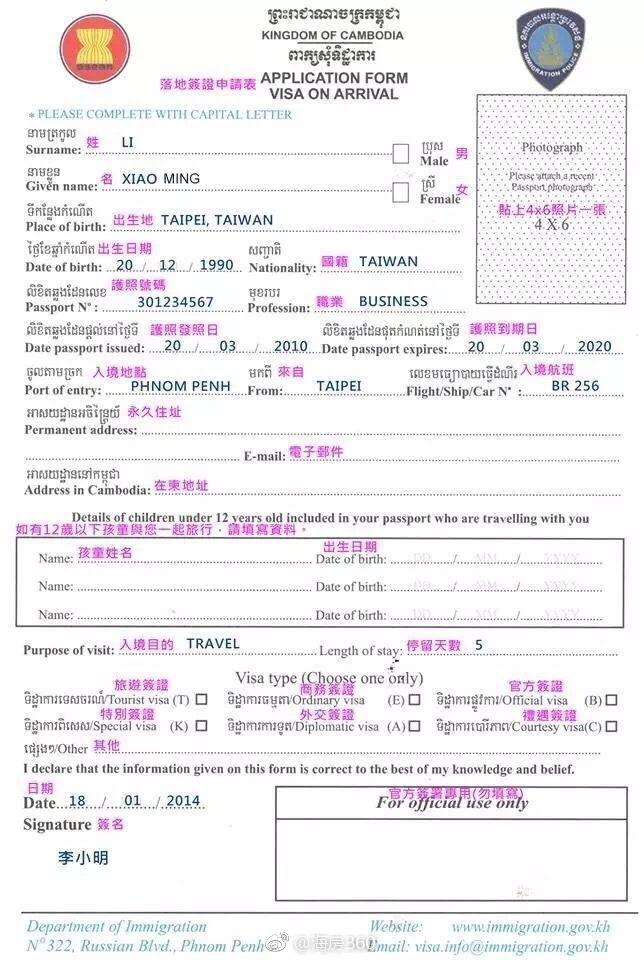 ព្រះរាជាណាចក្រកម្ពុជា
KINGDOM OF CAMBODIA
ពាក្យសុំទិដ្ឋាការ
落地簽證申請表 APPLICATION FORM
VISA ON ARRIVAL
IMMIGRATION POLICE
* PLEASE COMPLETE WITH CAPITAL LETTER
នាមត្រកូល
Surname: 姓 LI
ប្រុស
Male 男
នាមខ្លួន
Given name: 名 XIAO MING
ស្រី
Female 女
Photograph
Please attach a recent
Passport photograph
貼上4x6照片一張
4 X 6
ទីកន្លែងកំណើត
Place of birth: 出生地 TAIPEI, TAIWAN
ថ្ងៃខែឆ្នាំកំណើត 出生日期 សញ្ជាតិ
Date of birth: 20 / 12 / 1990 Nationality: 國籍 TAIWAN
លិខិតឆ្លងដែនលេខ 護照號碼 មុខរបរ
Passport Nº: 301234567 Profession: 職業 BUSINESS
លិខិតឆ្លងដែនផ្តល់នៅថ្ងៃទី 護照發照日 លិខិតឆ្លងដែនផុតកំណត់នៅថ្ងៃទី 護照到期日
Date passport issued: 20 / 03 / 2010 Date passport expires: 20 / 03 / 2020
ចូលតាមច្រក 入境地點 មកពី 來自 លេខមធ្យោបាយធ្វើដំណើរ 入境航班
Port of entry: PHNOM PENH From: TAIPEI Flight/Ship/Car Nº: BR 256
អាសយដ្ឋានអចិន្ត្រៃយ៍ 永久住址
Permanent address:
E-mail: 電子郵件
អាសយដ្ឋាននៅកម្ពុជា
Address in Cambodia: 在柬地址
Details of children under 12 years old included in your passport who are travelling with you
如有12歲以下孩童與您一起旅行，請填寫資料。
Name: 孩童姓名 出生日期
Date of birth: DD / MM / YYYY
Name: Date of birth: DD / MM / YYYY
Name: Date of birth: DD / MM / YYYY
Purpose of visit: 入境目的 TRAVEL Length of stay: 停留天數 5
Visa type (Choose one only)
旅遊簽證 商務簽證 官方簽證
ទិដ្ឋាការទេសចរណ៍/Tourist visa (T) ទិដ្ឋាការធម្មតា/Ordinary visa (E) ទិដ្ឋាការផ្លូវការ/Official visa (B)
特別簽證 外交簽證 禮遇簽證
ទិដ្ឋាការពិសេស/Special visa (K) ទិដ្ឋាការការទូត/Diplomatic visa (A) ទិដ្ឋាការបារើភាព/Courtesy visa(C)
ផ្សេងៗ/Other 其他
I declare that the information given on this form is correct to the best of my knowledge and belief.
日期
Date 18 / 01 / 2014
Signature 簽名
李小明
官方簽署專用(勿填寫)
For official use only
Department of Immigration
Nº 322, Russian Blvd., Phnom Penh
Website: www.immigration.gov.kh
Email: visa.info@immigration.gov.kh
@海房360